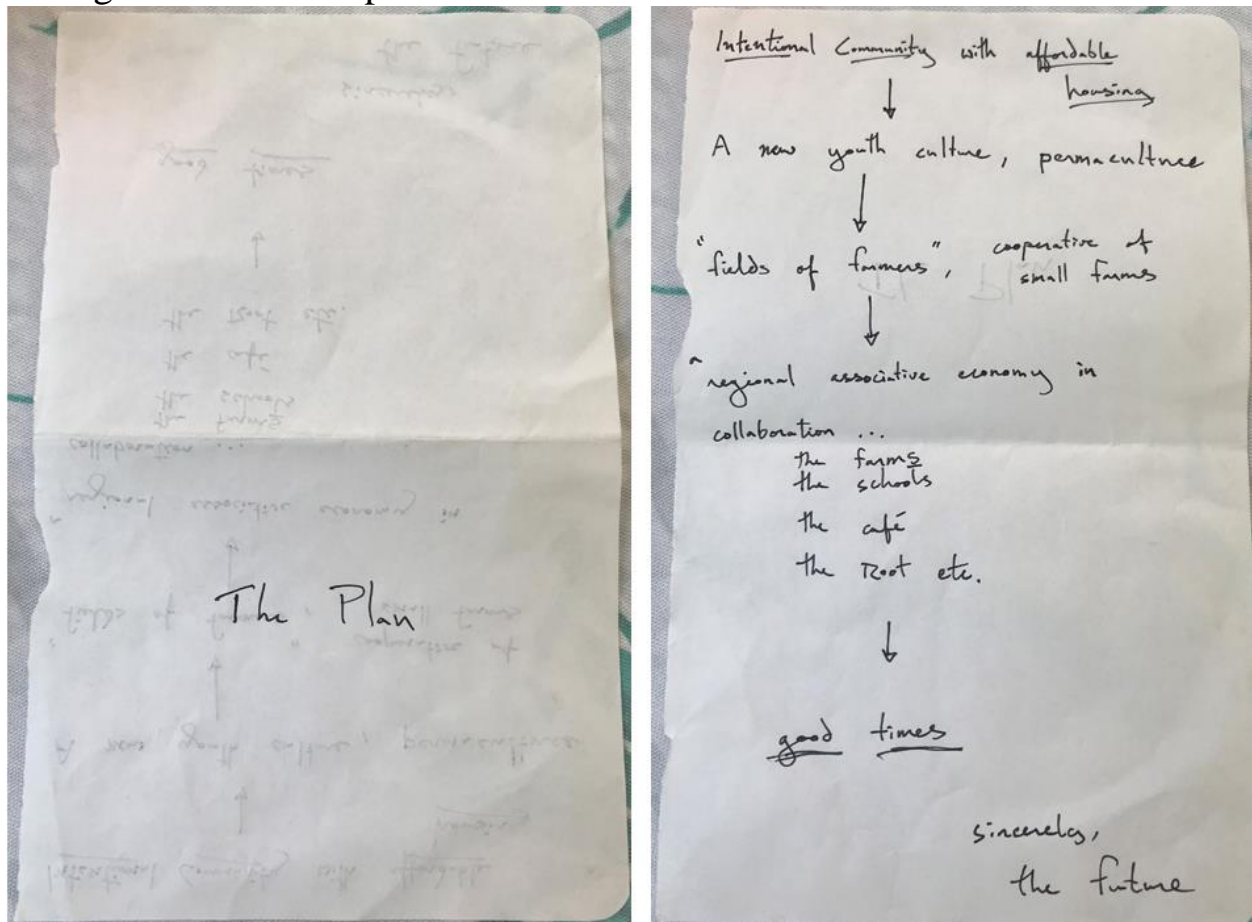 The Plan
Intentional Community with affordable
housing
A new youth culture, permaculture
"fields of farmers", cooperative of
small farms
^ regional associative economy in
collaboration ...
the farms
the schools
the café
the Root etc.
good times
sincerely,
the future